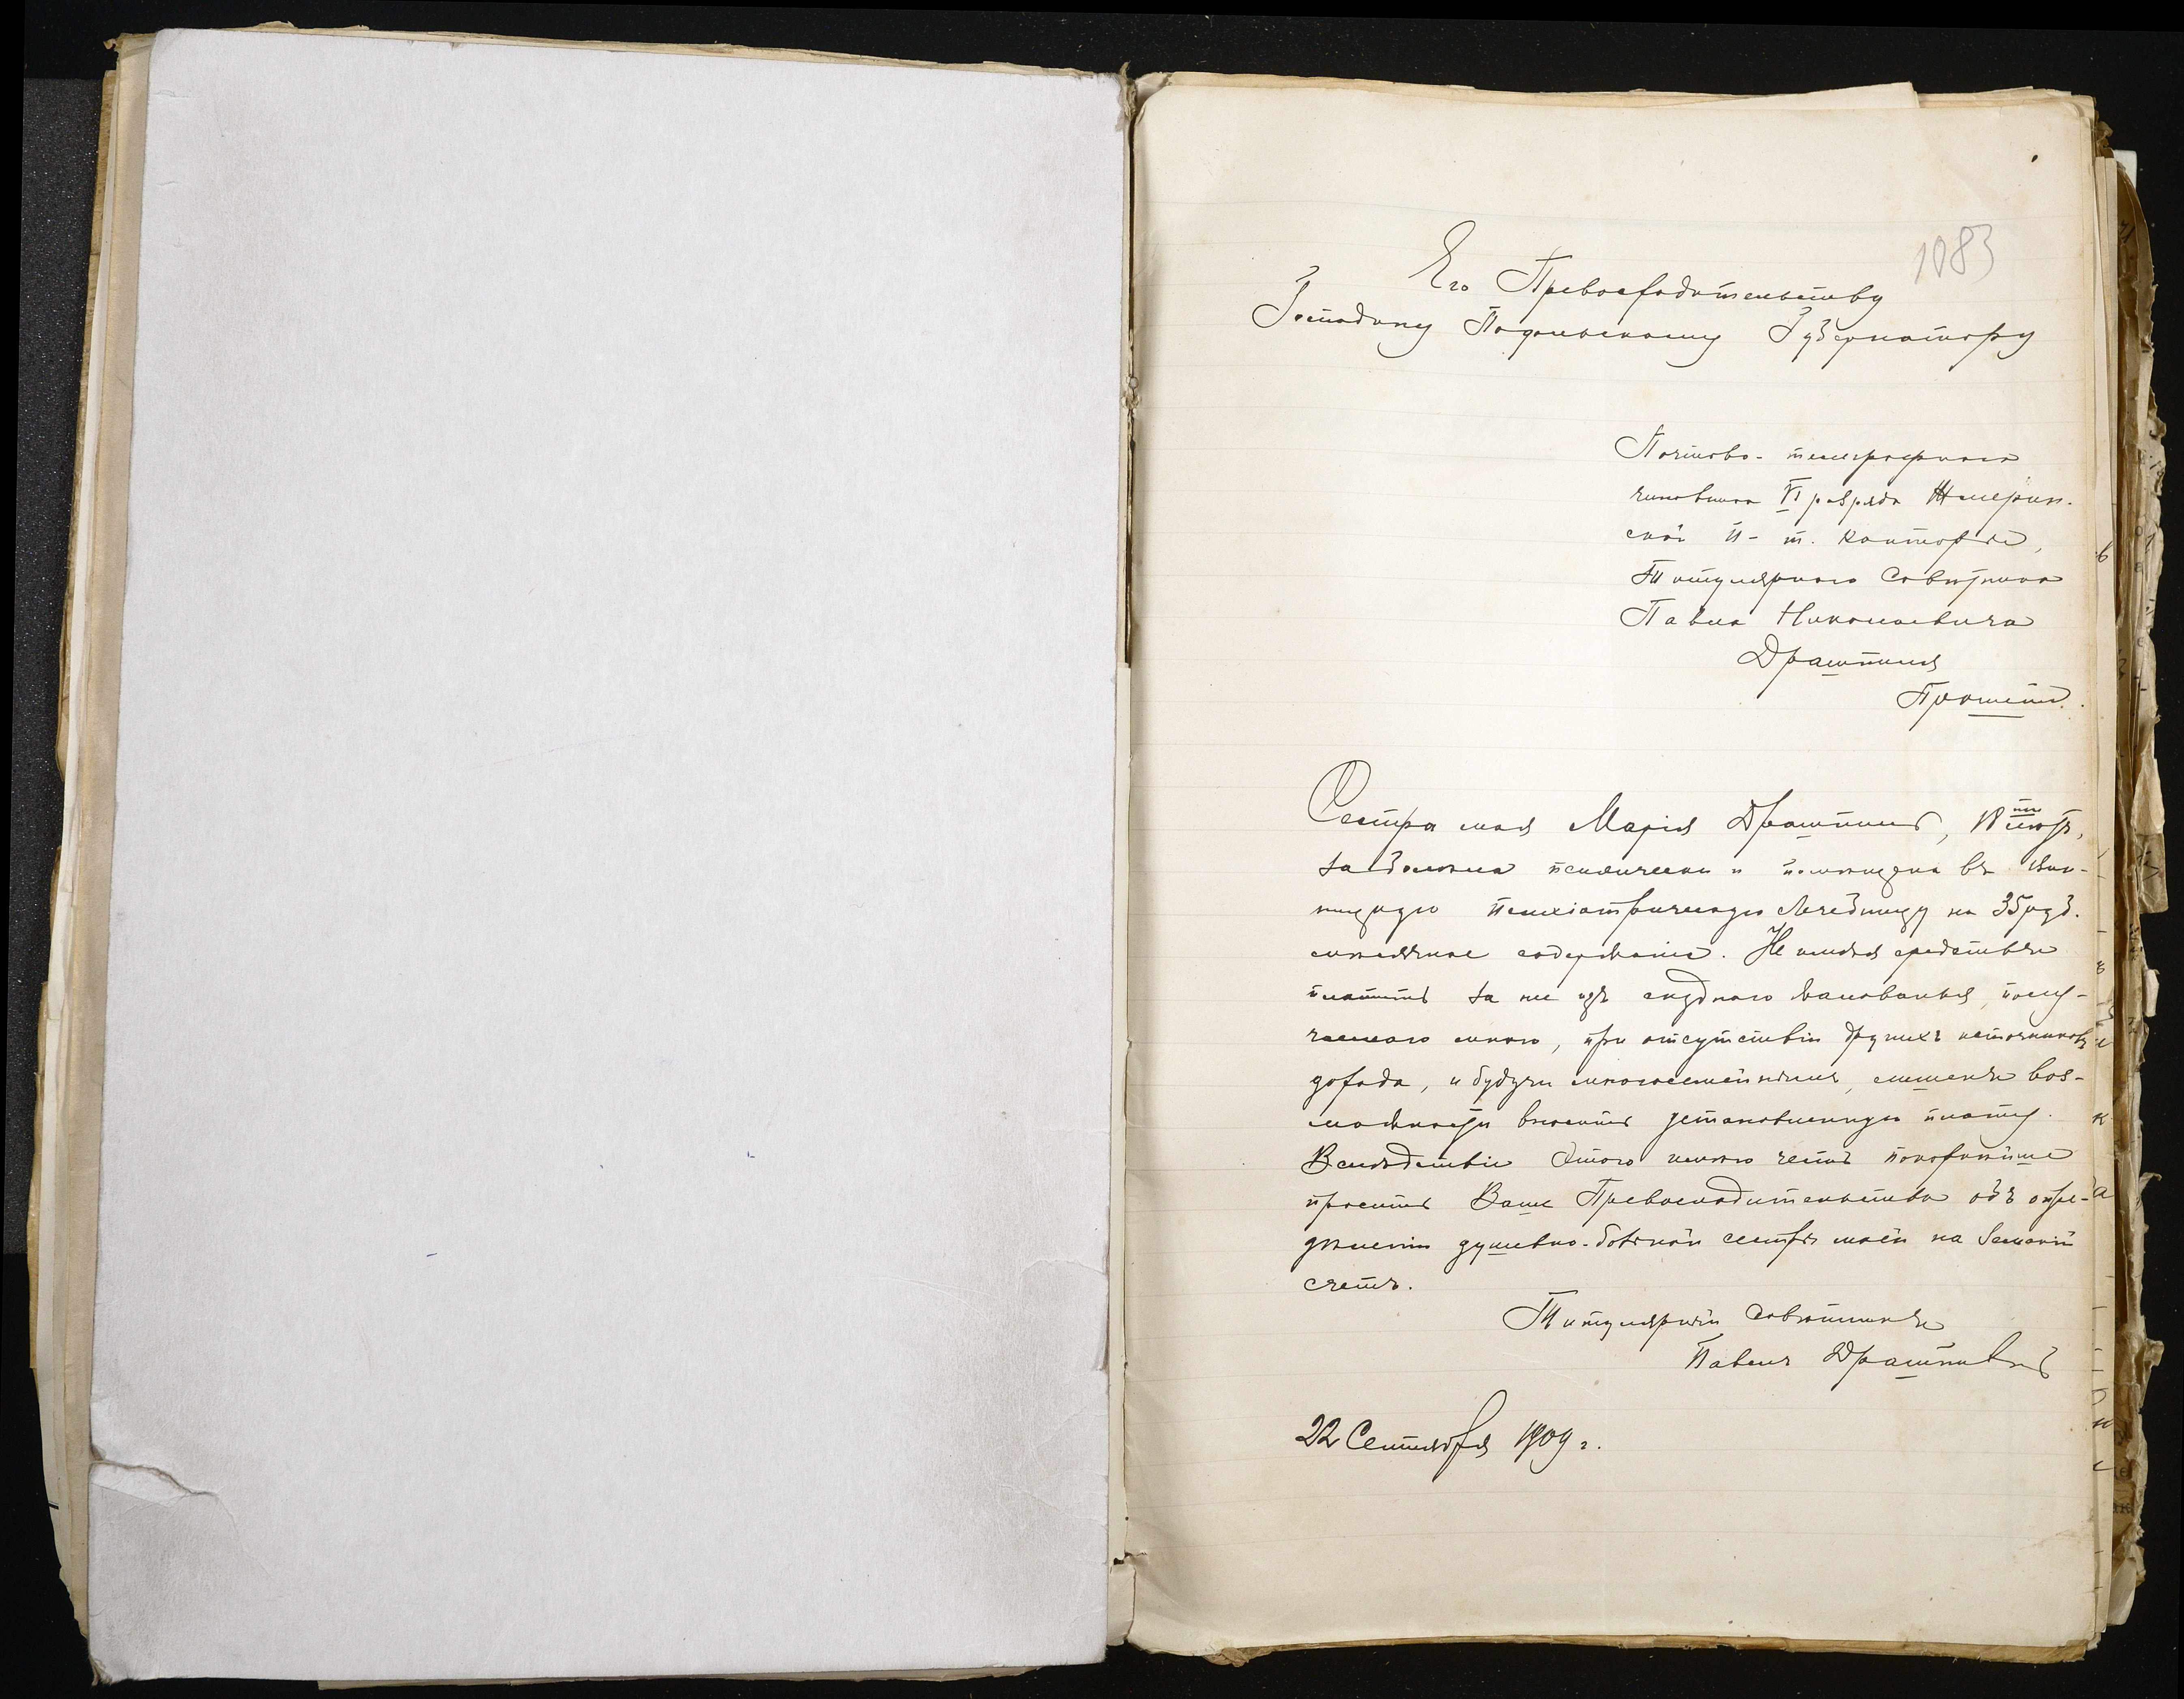 1083
Его Превосходительству
Господину Подольскому Губернатору
Почтово-телеграфнаго
чиновника VI разряда Жмерин-
ской п-т. конторы,
Титулярнаго Совѣтника
Павла Николаевича
Прошеніе.
Сестра моя Марія 18 ти лѣтъ,
заболѣла психически и помѣщена въ Вин-
ницкую психіатрическую лечебницу на 35 руб.
мѣсячное содержаніе. Не имѣя средствъ
платить за нее изъ скуднаго жалованья, полу-
чаемаго мною, при отсутствіи другихъ источниковъ
дохода, и будучи многосемейнымъ, лишенъ воз-
можности вносить установленную плату.
Вслѣдствіе этого имѣю честь покорнѣйше
просить Ваше Превосходительство объ опре-
дѣленіи душевно-больной сестры моей на земскій
счетъ.
Титулярный совѣтникъ
Павелъ
22 Сентября 1909 г.